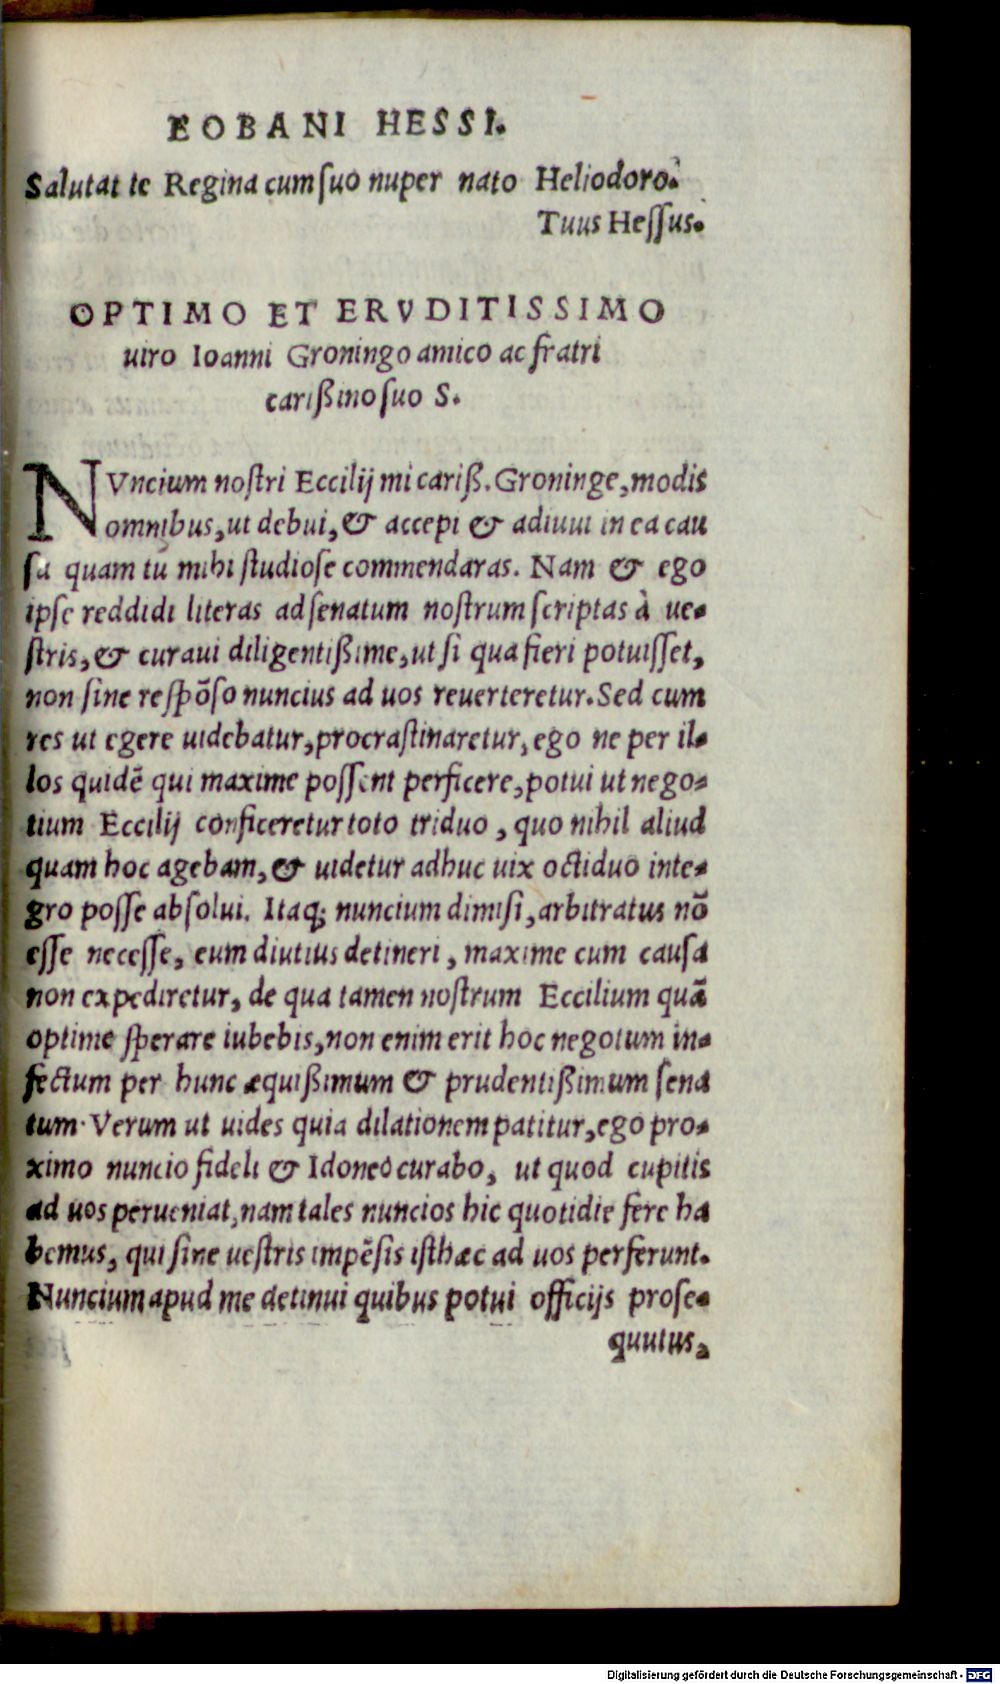 EOBANI HESSI.
Salutat te Regina cum ſuo nuper nato Heliodoro.
Tuus Heſſus.
OPTIMO ET ERVDITISSIMO
uiro Ioanni Groningo amico ac fratri
carißimo ſuo S.
NVncium noſtri Eccilij mi cariß. Groninge, modis
omnibus, ut debui, & accepi & adiuui in ea cau
ſa quam tu mihi ſtudioſe commendaras. Nam & ego
ipſe reddidi literas ad ſenatum noſtrum ſcriptas à ue-
ſtris, & curaui diligentißime, ut ſi qua fieri potuiſſet,
non ſine reſpõſo nuncius ad uos reuerteretur. Sed cum
res ut egere uidebatur, procraſtinaretur, ego ne per il-
los quidẽ qui maxime poſſent perficere, potui ut nego-
tium Eccilij conficeretur toto triduo, quo nihil aliud
quam hoc agebam, & uidetur adhuc uix octiduo inte-
gro poſſe abſolui. Itaq; nuncium dimiſi, arbitratus nõ
eſſe neceſſe, eum diutius detineri, maxime cum cauſa
non expediretur, de qua tamen noſtrum Eccilium quã
optime ſperare iubebis, non enim erit hoc negotum in-
fectum per hunc æquißimum & prudentißimum ſena
tum. Verum ut uides quia dilationem patitur, ego pro-
ximo nuncio fideli & Idoneo curabo, ut quod cupitis
ad uos perueniat, nam tales nuncios hic quotidie fere ha
bemus, qui ſine ueſtris impẽſis iſthæc ad uos perferunt.
Nuncium apud me detinui quibus potui officijs proſe-
quutus,
Digitalisierung gefördert durch die Deutsche Forschungsgemeinschaft - DFG